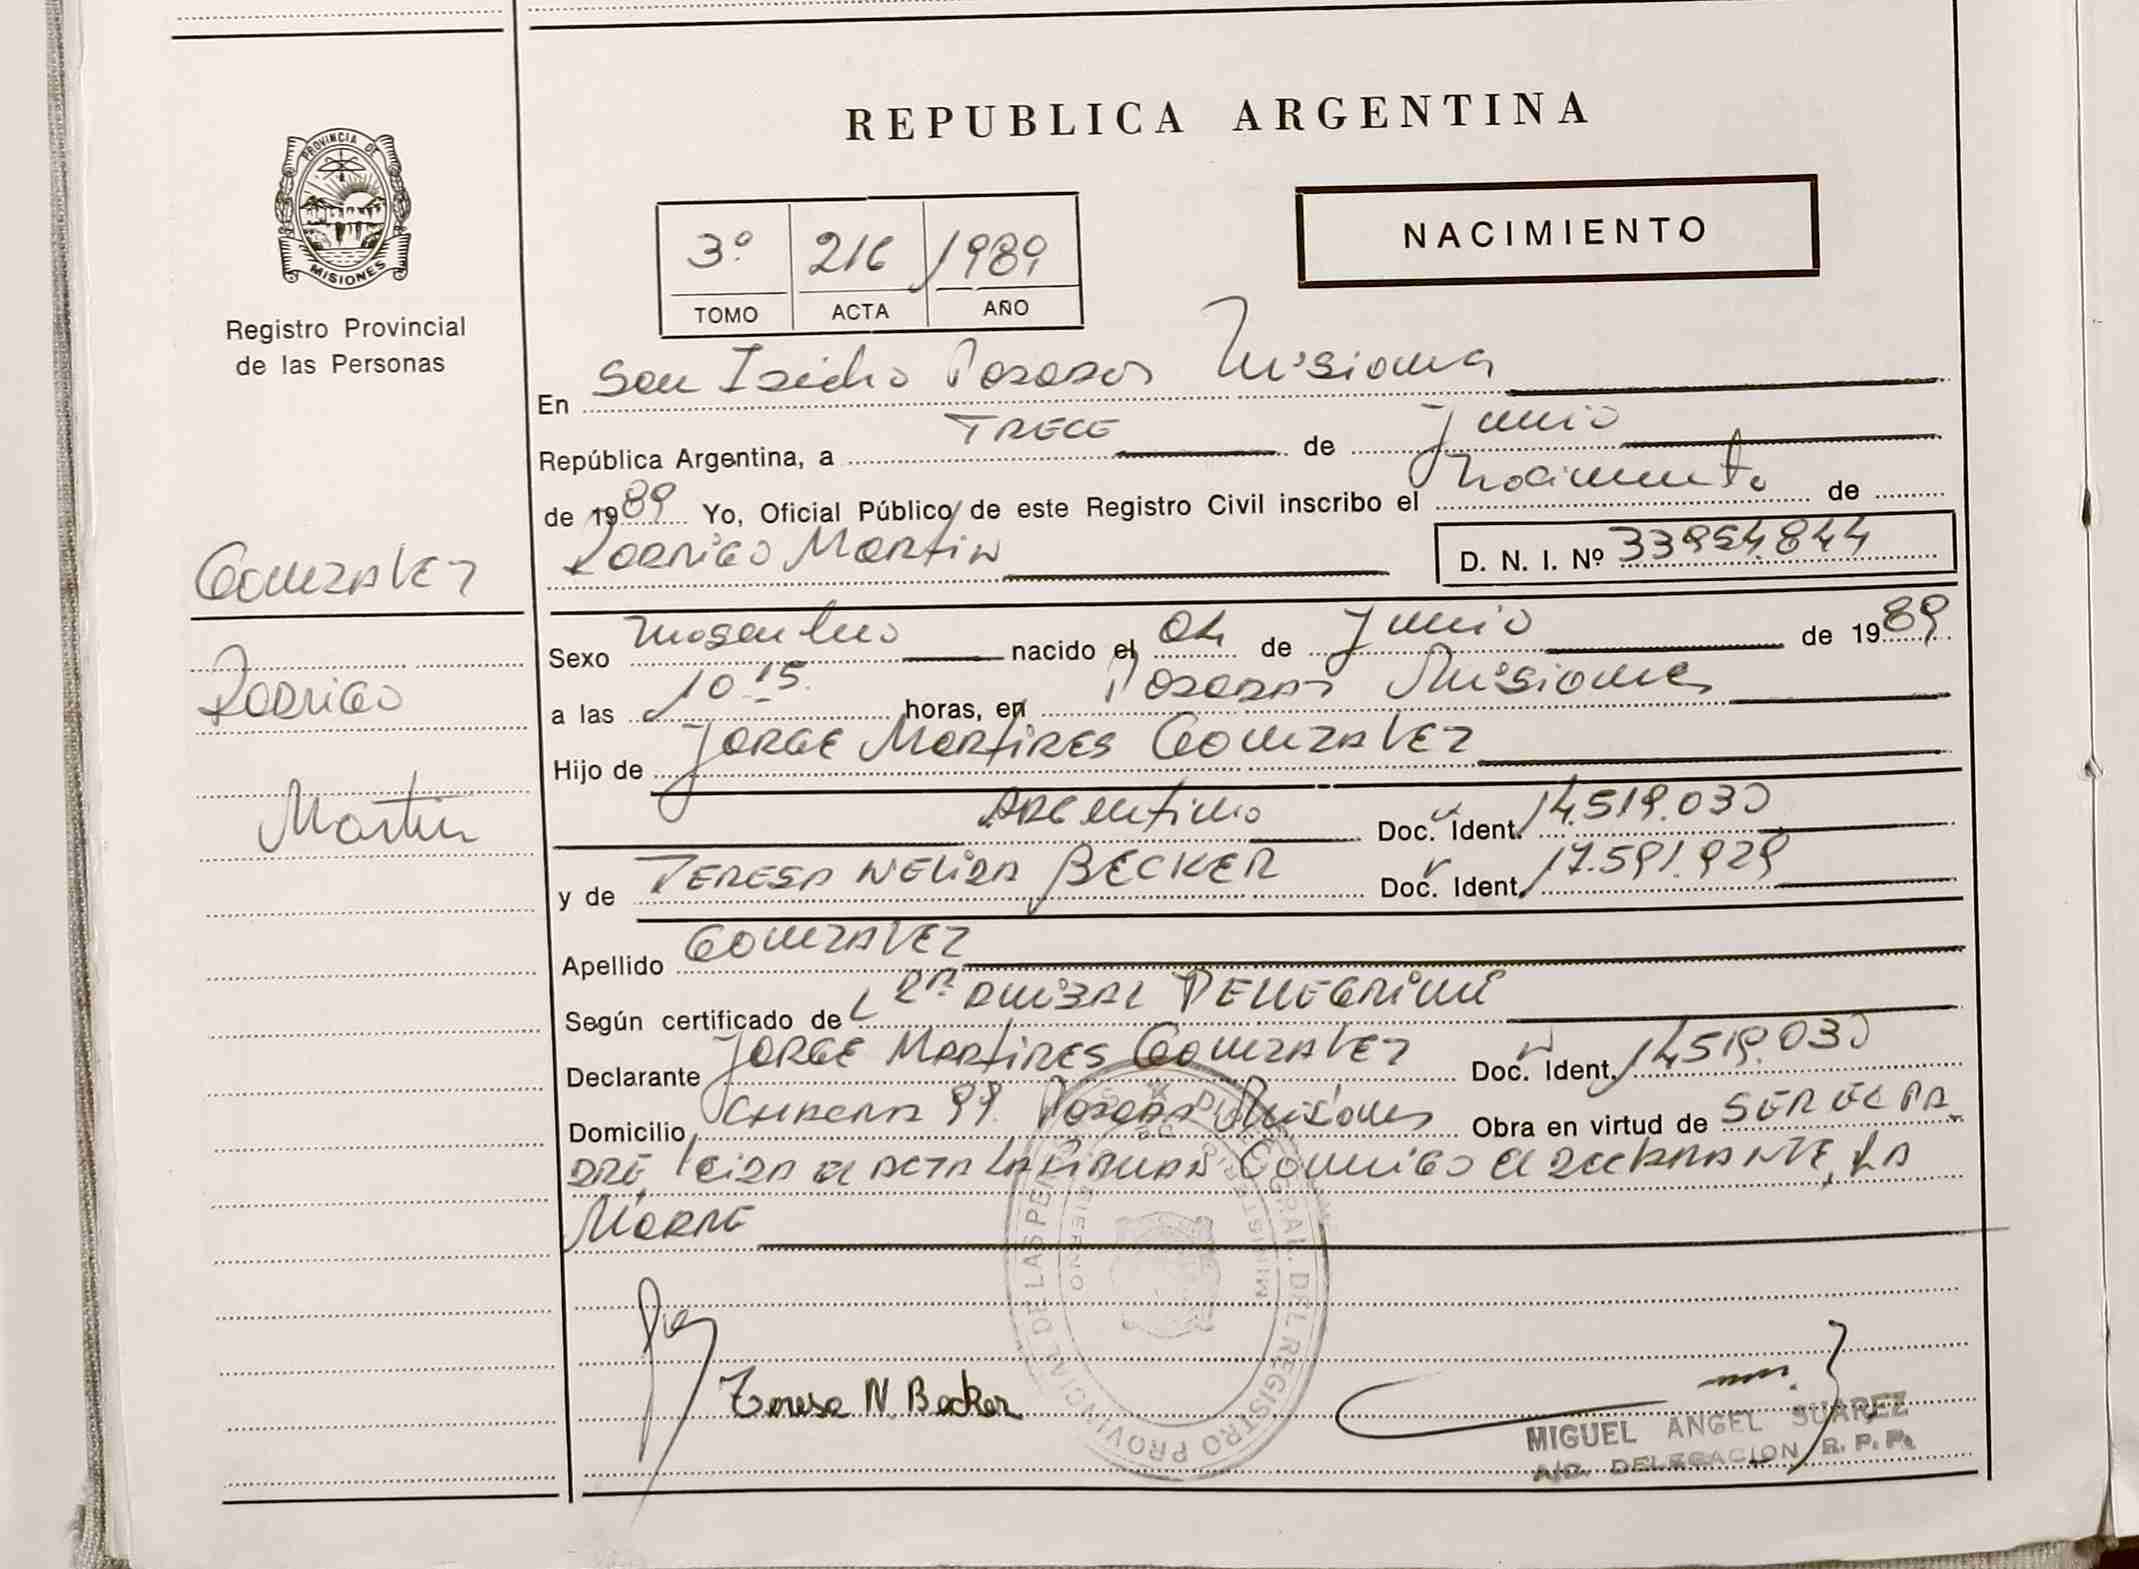 REPUBLICA ARGENTINA
PROVINCIA DE
MISIONES
Registro Provincial
de las Personas
3º 216 1989
TOMO ACTA AÑO
NACIMIENTO
En San Isidro Posadas Misiones
República Argentina, a TRECE de Junio
de 1989 Yo, Oficial Público de este Registro Civil inscribo el Nacimiento de
Rodrigo Martin D. N. I. Nº 33954.844
Gonzalez
Rodrigo
Martin
Sexo masculino nacido el 04 de Junio de 1989
a las 10 15 horas, en Posadas Misiones
Hijo de Jorge Martires Gonzalez
Argentino Doc. Ident. 14.519.030
y de Teresa Nelida BECKER Doc. Ident. 17.591.929
Apellido Gonzalez
Según certificado de Dr Anibal Pellegrini
Declarante Jorge Martires Gonzalez Doc. Ident. 14519.030
Domicilio 99 Posadas Misiones Obra en virtud de SER EL PA
DRE, leida el acta la firman conmigo el declarante, la
Madre
DIREC GRAL. DEL REGISTRO PROVINCIAL DE LAS PE
MINISTERIO DE GOBIERNO
Teresa N. Becker
MIGUEL ANGEL SUAREZ
A/C. DELEGACION R. P. P.